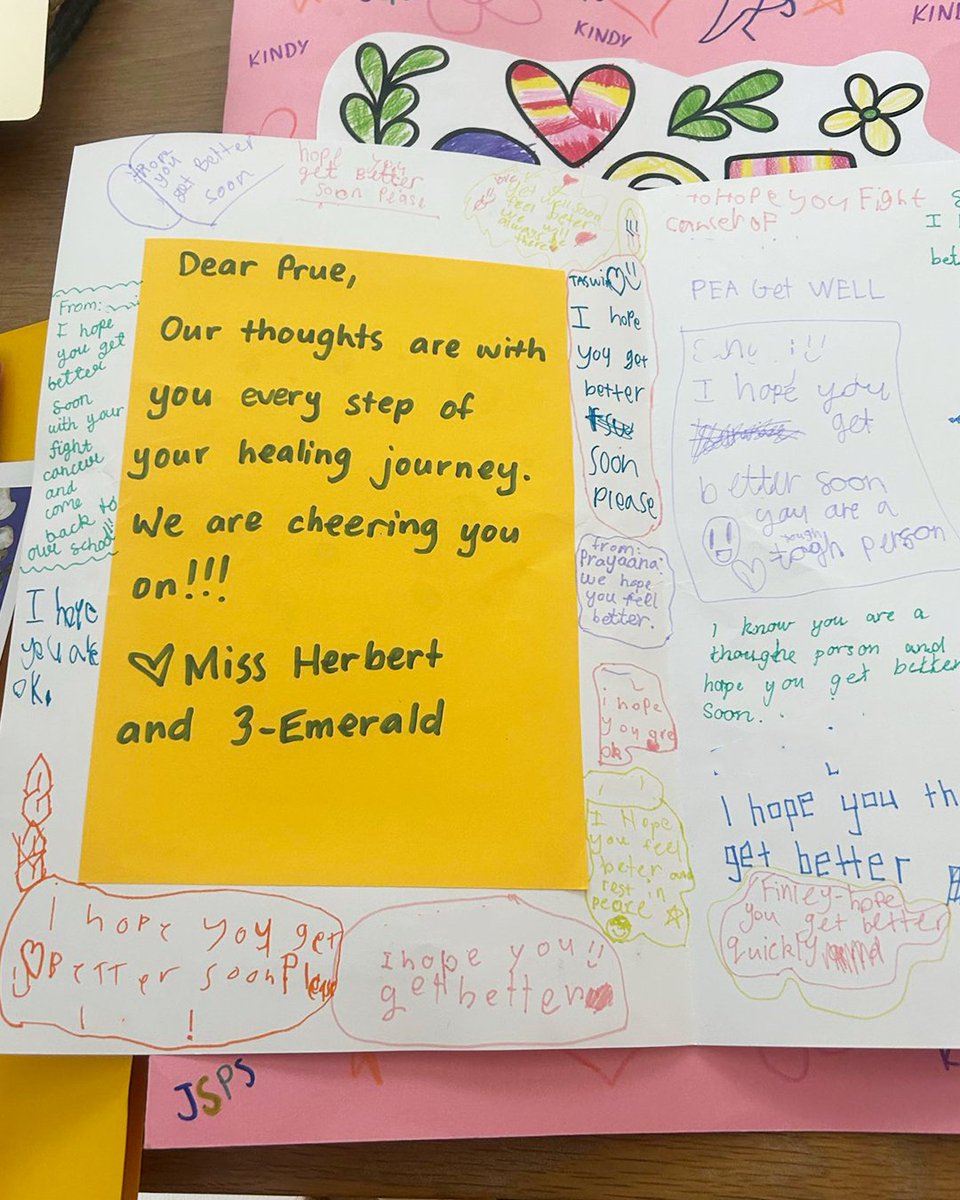 KINDY
KINDY
KIN
I hope
you
get Better
soon
hope you
get Better
soon Please
get well soon
feel better
we will
always be
there
to Hope you Fight
cancer oF
I h
bet
Dear Prue,
Our thoughts are with
you every step of
your healing journey.
We are cheering you
on!!!
Miss Herbert
and 3-Emerald
From:
I hope
you get
better
soon
with your
fight
cancer
and
come
back to
our school!!
I hope
you are
OK.
I hope yoy get
Better soon Please
!
I hope you!!
get better
I hope
yoy get
better
soon
please
from:
Prayaana:
we hope
you feel
better.
i hope
you are
oks
I Hope
you feel
beter and
rest in
peace
PEA Get WELL
I hope you
get
better soon
you are a
tough
togh person
I know you are a
thoughe porson and
hope you get better
soon.
I hope you th
get better
Finley-hope
you get better
quickly
JSPS